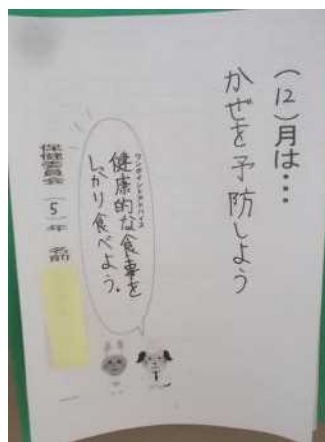 （12）月は・・・
かぜを予防しよう
ワンポイントアドバイス
健康的な食事を
しかり食べよう。
保健委員会（5）年 名前